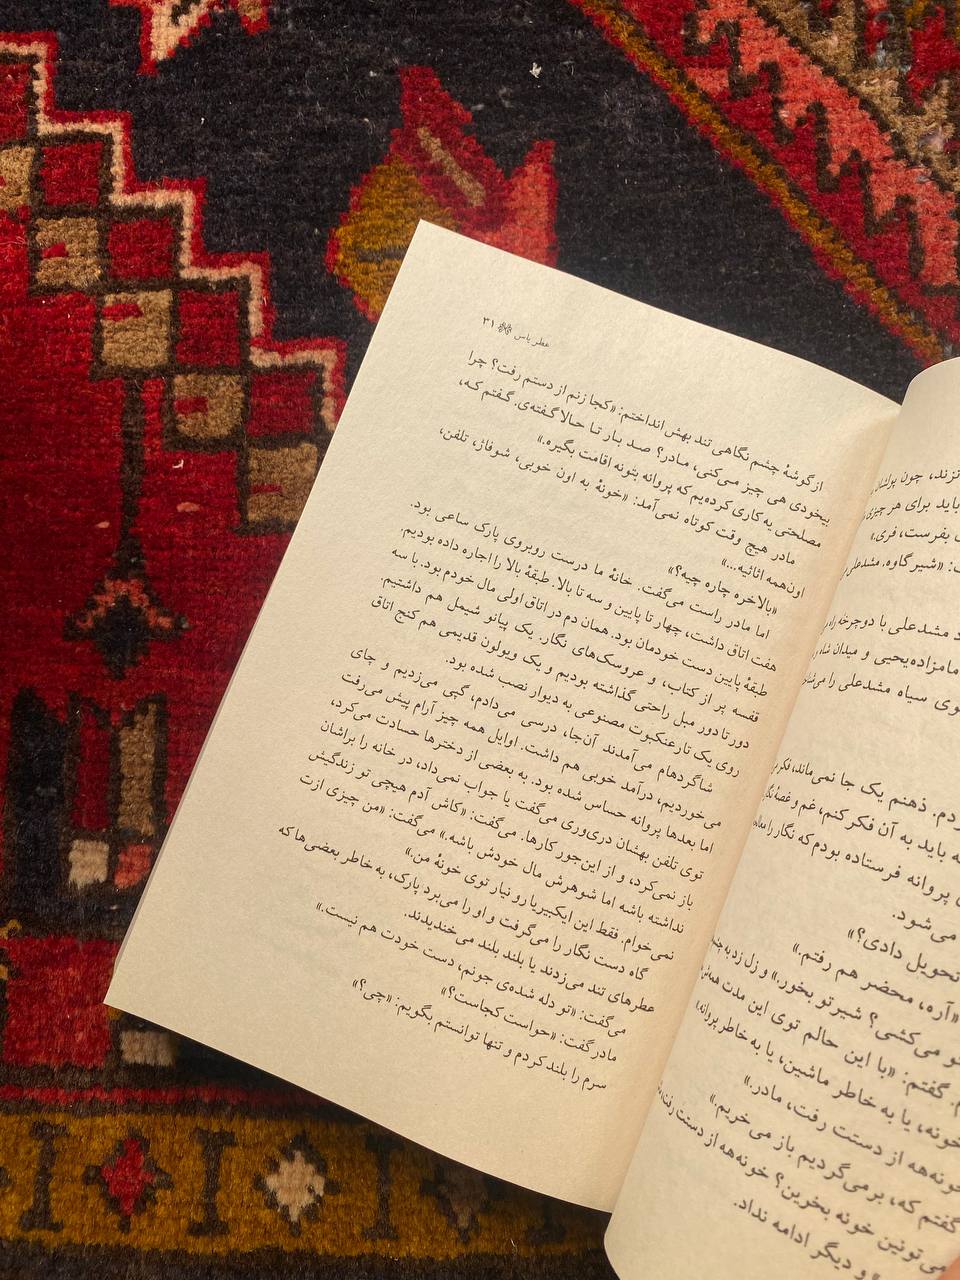 نزند، چون پولشان
باید برای هر چیزی
بفرست، فری.»
«شیر گاوه. مشدعلی
مشدعلی با دوچرخه راه
مامزاده‌یحیی و میدان شاه و
وی سیاه مشدعلی را
دم. ذهنم یک جا نمی‌ماند، فکر
باید به آن فکر کنم، غم و غصهٔ
پروانه فرستاده بودم که نگار را
می‌شود.
تحویل دادی؟»
«آره، محضر هم رفتم.»
و می‌کشی؟ شیر تو بخور.» و زل زد به
گفتم: «با این حالم توی این مدت
خونه، یا به خاطر ماشین، یا به خاطر پروانه.»
خونه‌هه از دستت رفت، مادر.»
گفتم که، برمی‌گردیم باز می‌خریم.»
می‌تونین خونه بخرین؟ خونه‌هه از دستت رفت،
و دیگر ادامه نداد.
عطر یاس ۳۱
از گوشهٔ چشم نگاهی تند بهش انداختم: «کجا زنم از دستم رفت؟ چرا
بیخودی هی چیز می‌کنی، مادر؟ صد بار تا حالا گفته‌ی. گفتم که،
مصلحتی یه کاری کرده‌یم که پروانه بتونه اقامت بگیره.»
مادر هیچ وقت کوتاه نمی‌آمد: «خونهٔ به اون خوبی، شوفاژ، تلفن،
اون‌همه اثاثیه...»
«بالاخره چاره چیه؟»
اما مادر راست می‌گفت. خانهٔ ما درست روبروی پارک ساعی بود.
هفت اتاق داشت، چهار تا پایین و سه تا بالا. طبقهٔ بالا را اجاره داده بودیم.
طبقهٔ پایین دست خودمان بود. همان دم در اتاق اولی مال خودم بود. با سه
قفسه پر از کتاب، و عروسک‌های نگار. یک پیانو شیمل هم داشتیم.
دور تا دور مبل راحتی گذاشته بودیم و یک ویولون قدیمی هم کنج اتاق
روی یک تار عنکبوت مصنوعی به دیوار نصب شده بود.
شاگردهام می‌آمدند آن‌جا، درسی می‌دادم، گپی می‌زدیم و چای
می‌خوردیم، درآمد خوبی هم داشت. اوایل همه چیز آرام پیش می‌رفت
اما بعدها پروانه حساس شده بود. به بعضی از دخترها حسادت می‌کرد،
توی تلفن بهشان دری‌وری می‌گفت یا جواب نمی‌داد، در خانه را براشان
باز نمی‌کرد، و از این جور کارها. می‌گفت: «کاش آدم هیچی تو زندگیش
نداشته باشه اما شوهرش مال خودش باشه.» می‌گفت: «من چیزی ازت
نمی‌خوام. فقط این ایکبیریا رو نیار توی خونهٔ من.»
گاه دست نگار را می‌گرفت و او را می‌برد پارک، به خاطر بعضی‌ها که
عطرهای تند می‌زدند یا بلند بلند می‌خندیدند.
می‌گفت: «تو دله شده‌ی جونم، دست خودت هم نیست.»
مادر گفت: «حواست کجاست؟»
سرم را بلند کردم و تنها توانستم بگویم: «چی؟»